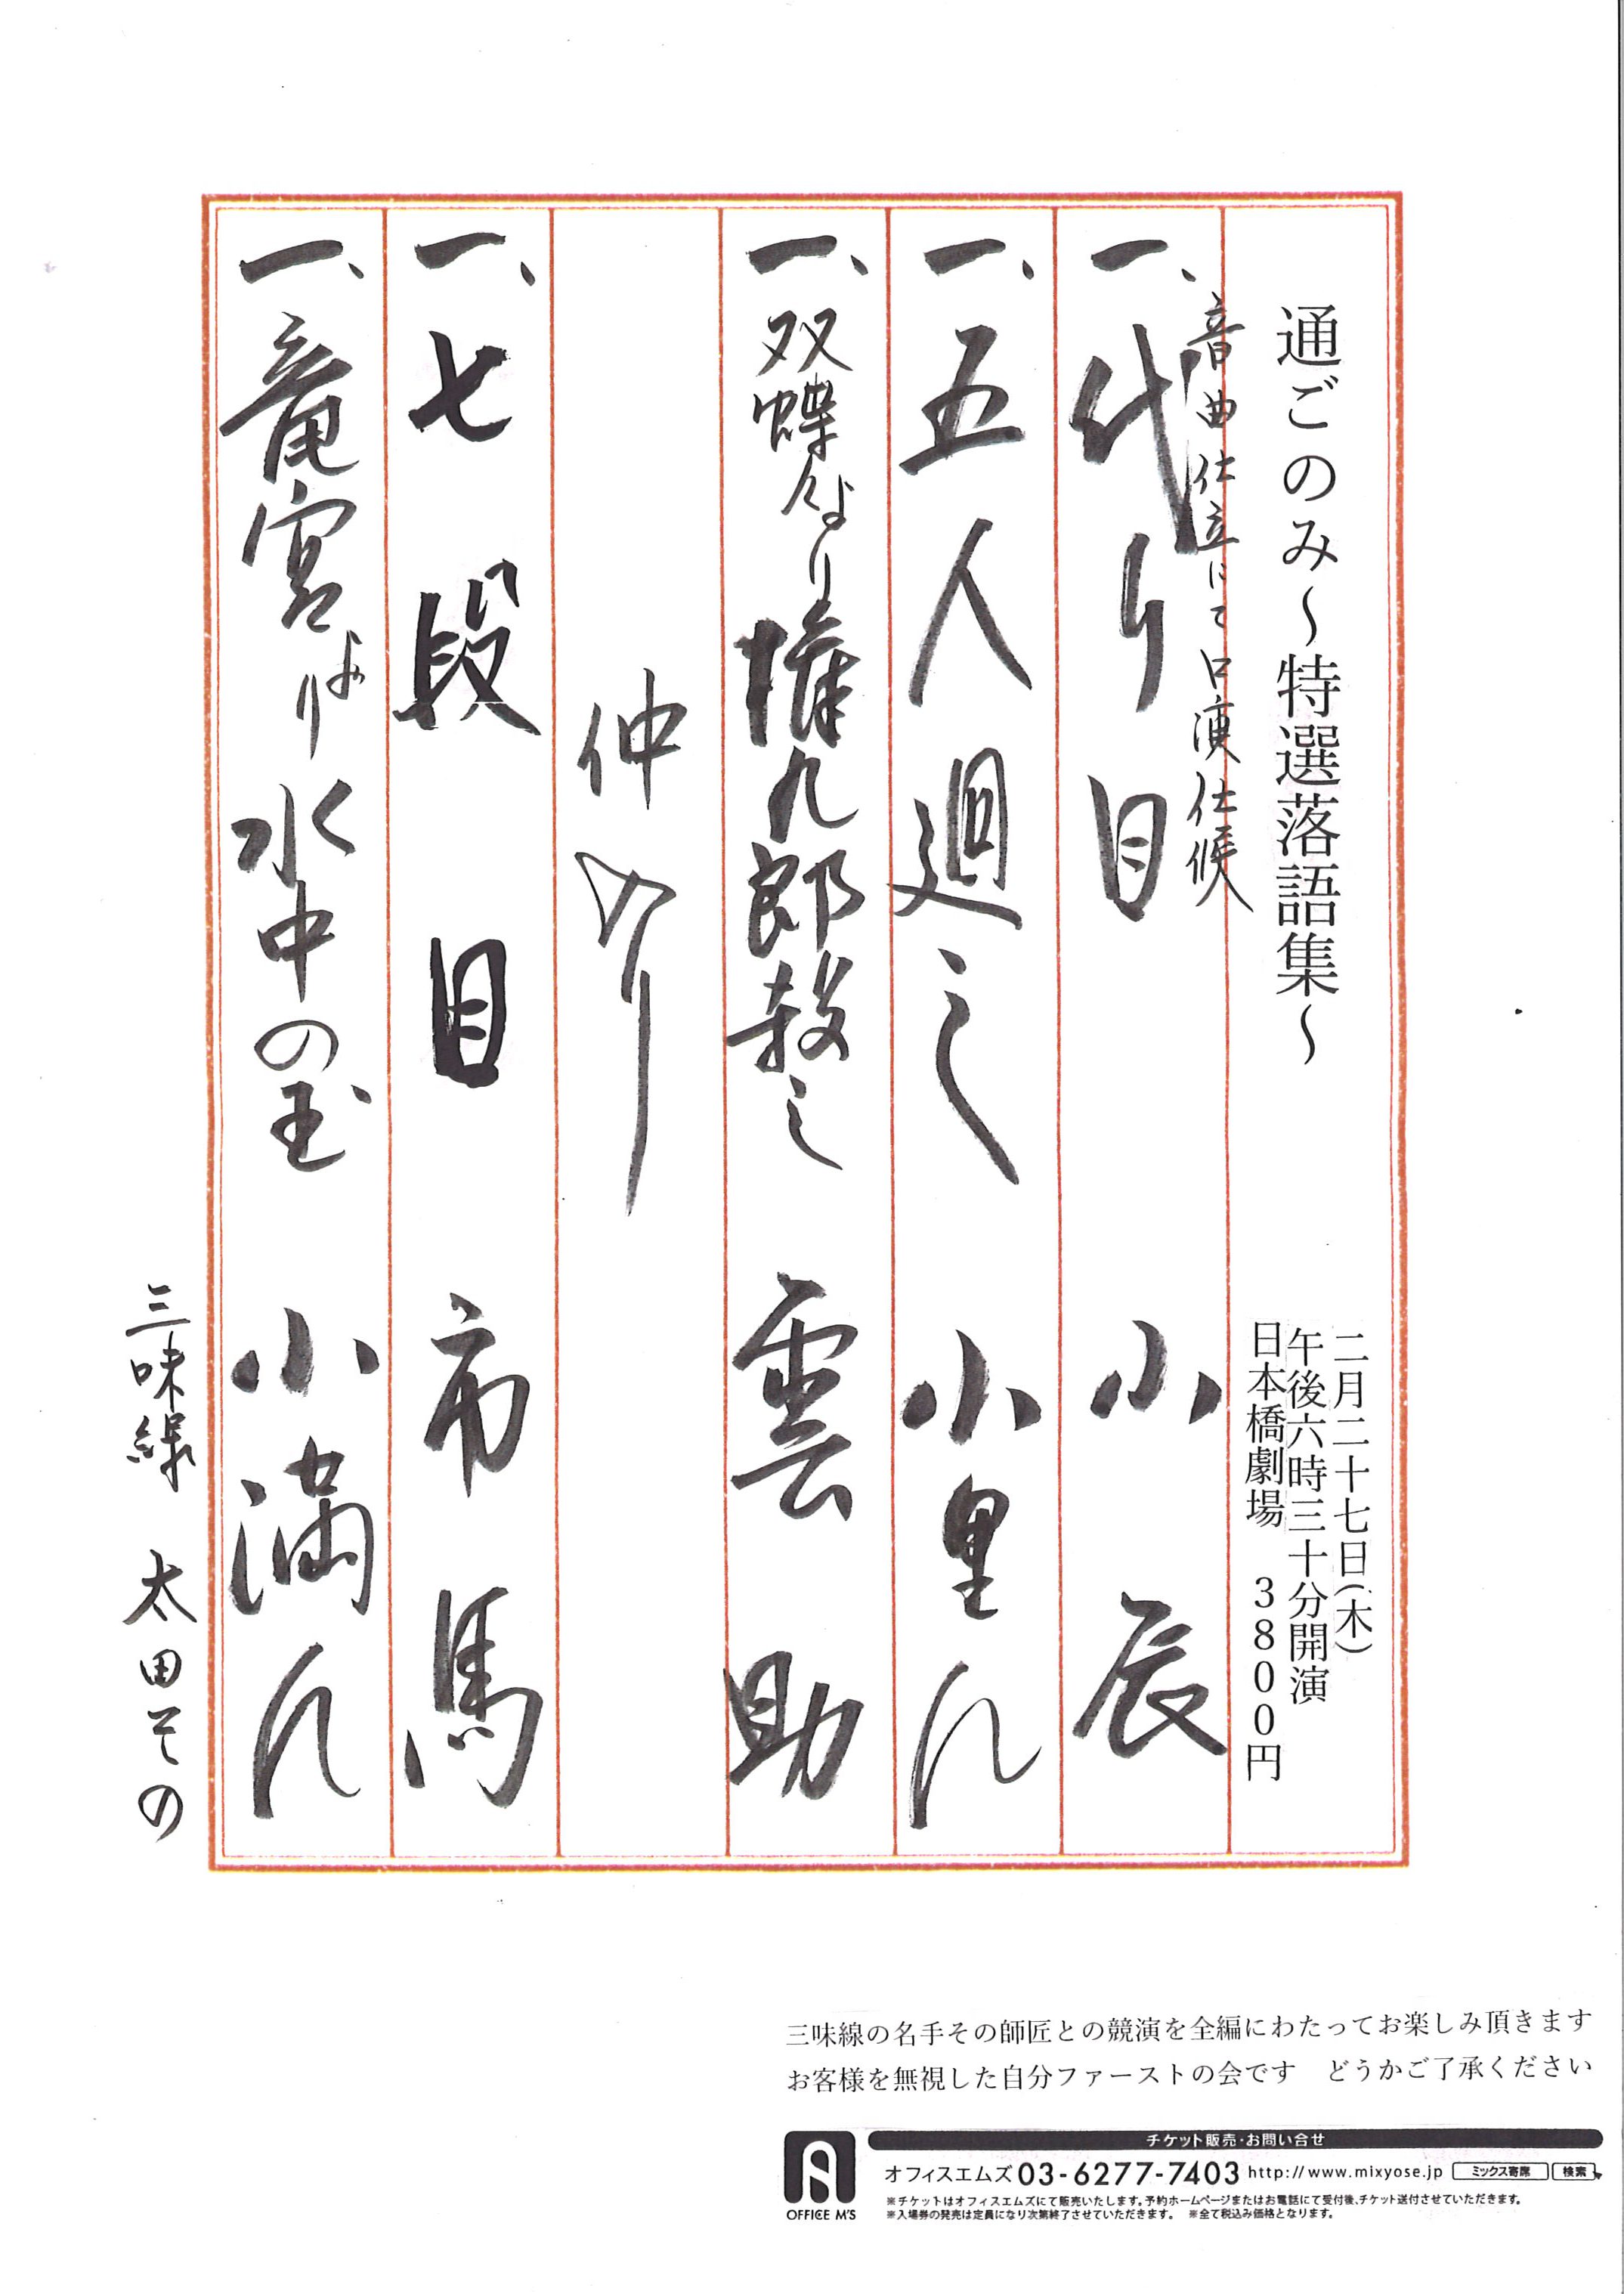 通ごのみ～特選落語集～
二月二十七日(木)
午後六時三十分開演
日本橋劇場　3800円
音曲仕立にて口演仕候
一、代り目　小辰
一、五人廻し　小里ん
一、双蝶々より権九郎殺し　雲助
仲入り
一、七段目　市馬
一、竜宮より水中の玉　小満ん
三味線　太田その
三味線の名手その師匠との競演を全編にわたってお楽しみ頂きます
お客様を無視した自分ファーストの会です　どうかご了承ください
チケット販売・お問い合せ
オフィスエムズ 03-6277-7403 http://www.mixyose.jp ミックス寄席 検索
※チケットはオフィスエムズにて販売いたします。予約ホームページまたはお電話にて受付後、チケット送付させていただきます。
※入場券の発売は定員になり次第終了させていただきます。　※全て税込み価格となります。
OFFICE M'S